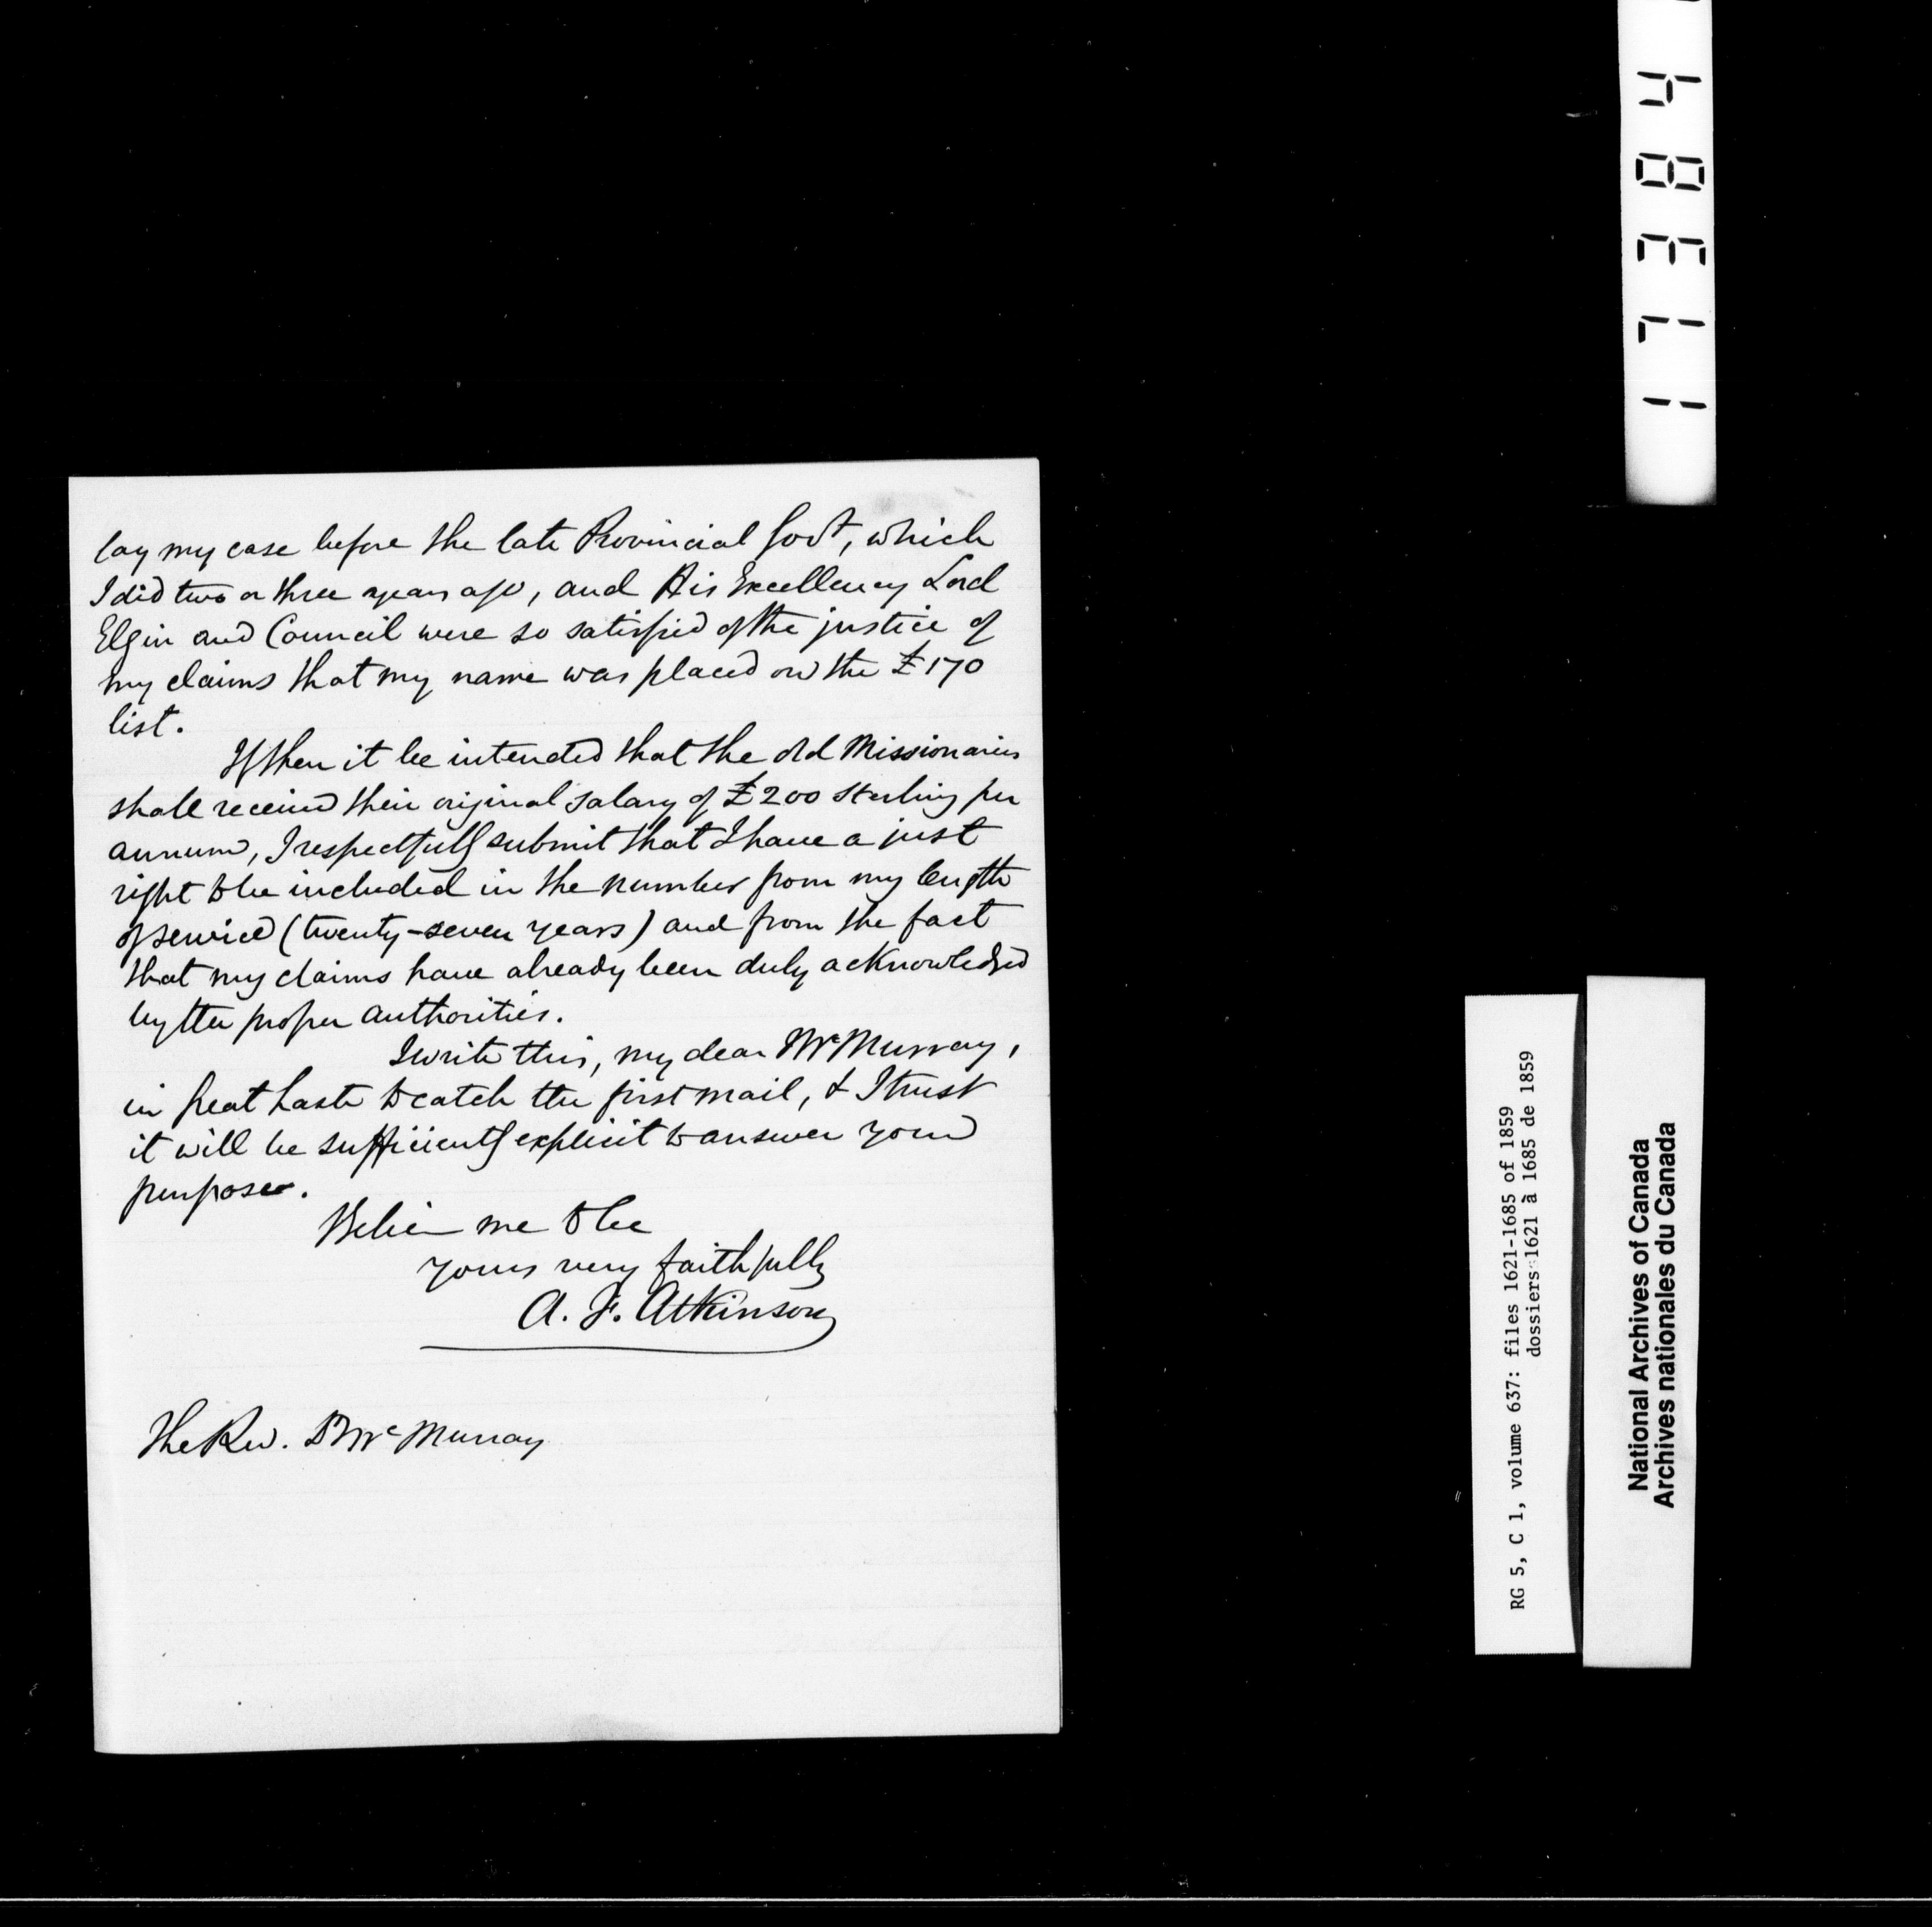 lay my case before the late Provincial Govt, which
I did two or three years ago, and His Excellency Lord
Elgin and Council were so satisfied of the justice of
my claims that my name was placed on the £170
list.
If then it be intended that the old Missionaries
shall receive their original salary of £200 sterling per
annum, I respectfully submit that I have a just
right to be included in the number from my length
of service (twenty-seven years) and from the fact
that my claims have already been duly acknowledged
by the proper authorities.
I write this, my dear McMurray,
in great haste to catch the first mail, & I trust
it will be sufficiently explicit to answer your
purpose.
Believe me to be
yours very faithfully
A. F. Atkinson
The Rev. Dr McMurray
17384
RG 5, C 1, volume 637: files 1621-1685 of 1859
dossiers 1621 à 1685 de 1859
National Archives of Canada
Archives nationales du Canada